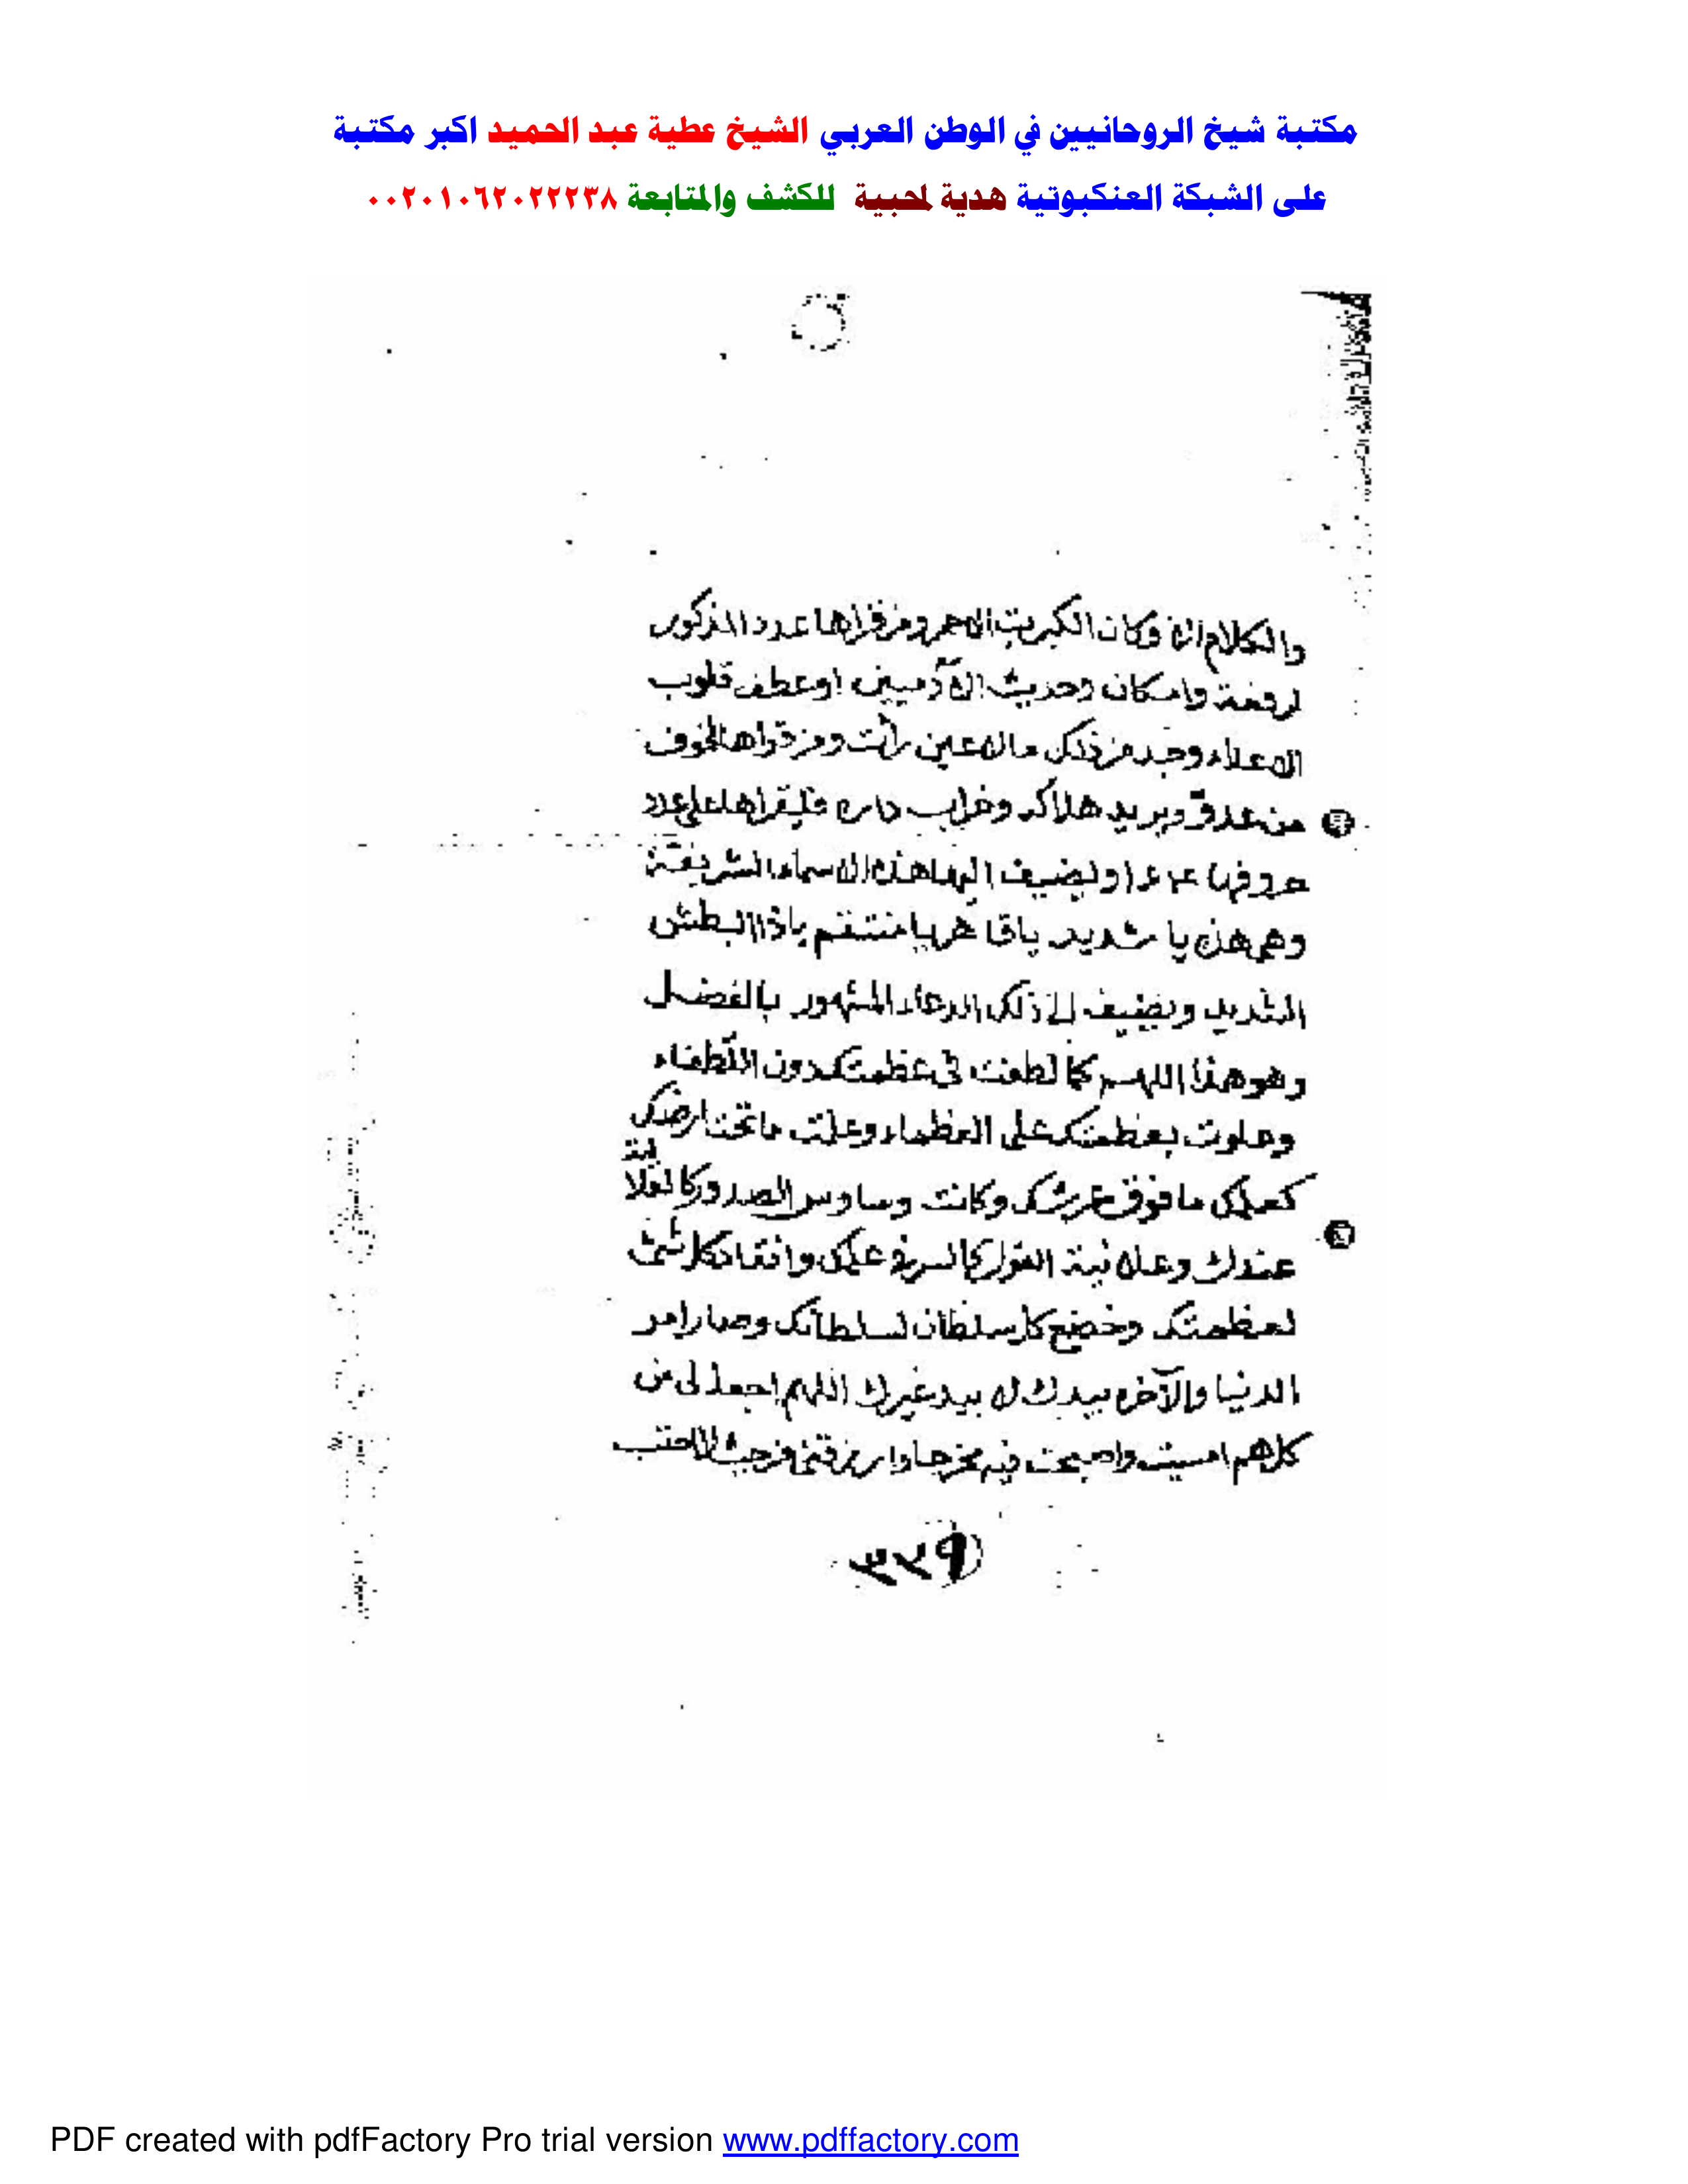 مكتبة شيخ الروحانيين في الوطن العربي الشيخ عطية عبد الحميد اكبر مكتبة
على الشبكة العنكبوتية هدية لمحبية للكشف والمتابعة ٠٠٢٠١٠٦٢٠٢٢٢٣٨
والكلام وكان الكبريت الاحمر ومن قراها عدد المذكور
لرفعة وامكان وحديث الآدميين او عطف قلوب
الاعداء وجد من ذلك ما لا عين رأت ومن قراها لخوف
من عدو ويريد هلاكه وخراب داره فليقراها على عدد
حروفها ويضيف اليها هذه الاسماء الشريفة
وهي هذه يا شديد يا قاهر يا منتقم ياذا البطش
الشديد ويضيف الى ذلك الدعاء المشهور بالفضل
وهو هذا اللهم كما لطفت في عظمتك دون اللطفاء
وعلوت بعظمتك على العظماء وعلمت ما تحت ارضك
كعلمك ما فوق عرشك وكانت وساوس الصدور كالعلانية
عندك وعلانية القول كالسر في علمك وانقاد كل شئ
لعظمتك وخضع كل سلطان لسلطانك وصار امر
الدنيا والآخرة بيدك لا بيد غيرك اللهم اجعل لي من
كل هم امسيت واصبحت فيه مخرجا وارزقني من حيث لا احتسب
٣٢٩
PDF created with pdfFactory Pro trial version www.pdffactory.com